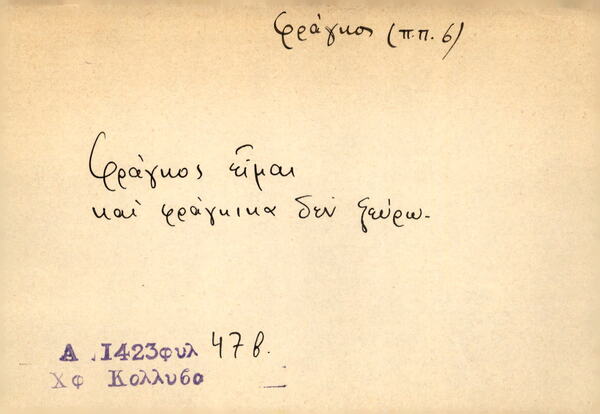 φράγκος (π.π. 6)
Φράγκος εἶμαι
καὶ φράγκικα δὲν ξεύρω.
Α 1423φυλ 47β.
Χφ Κολλυβα